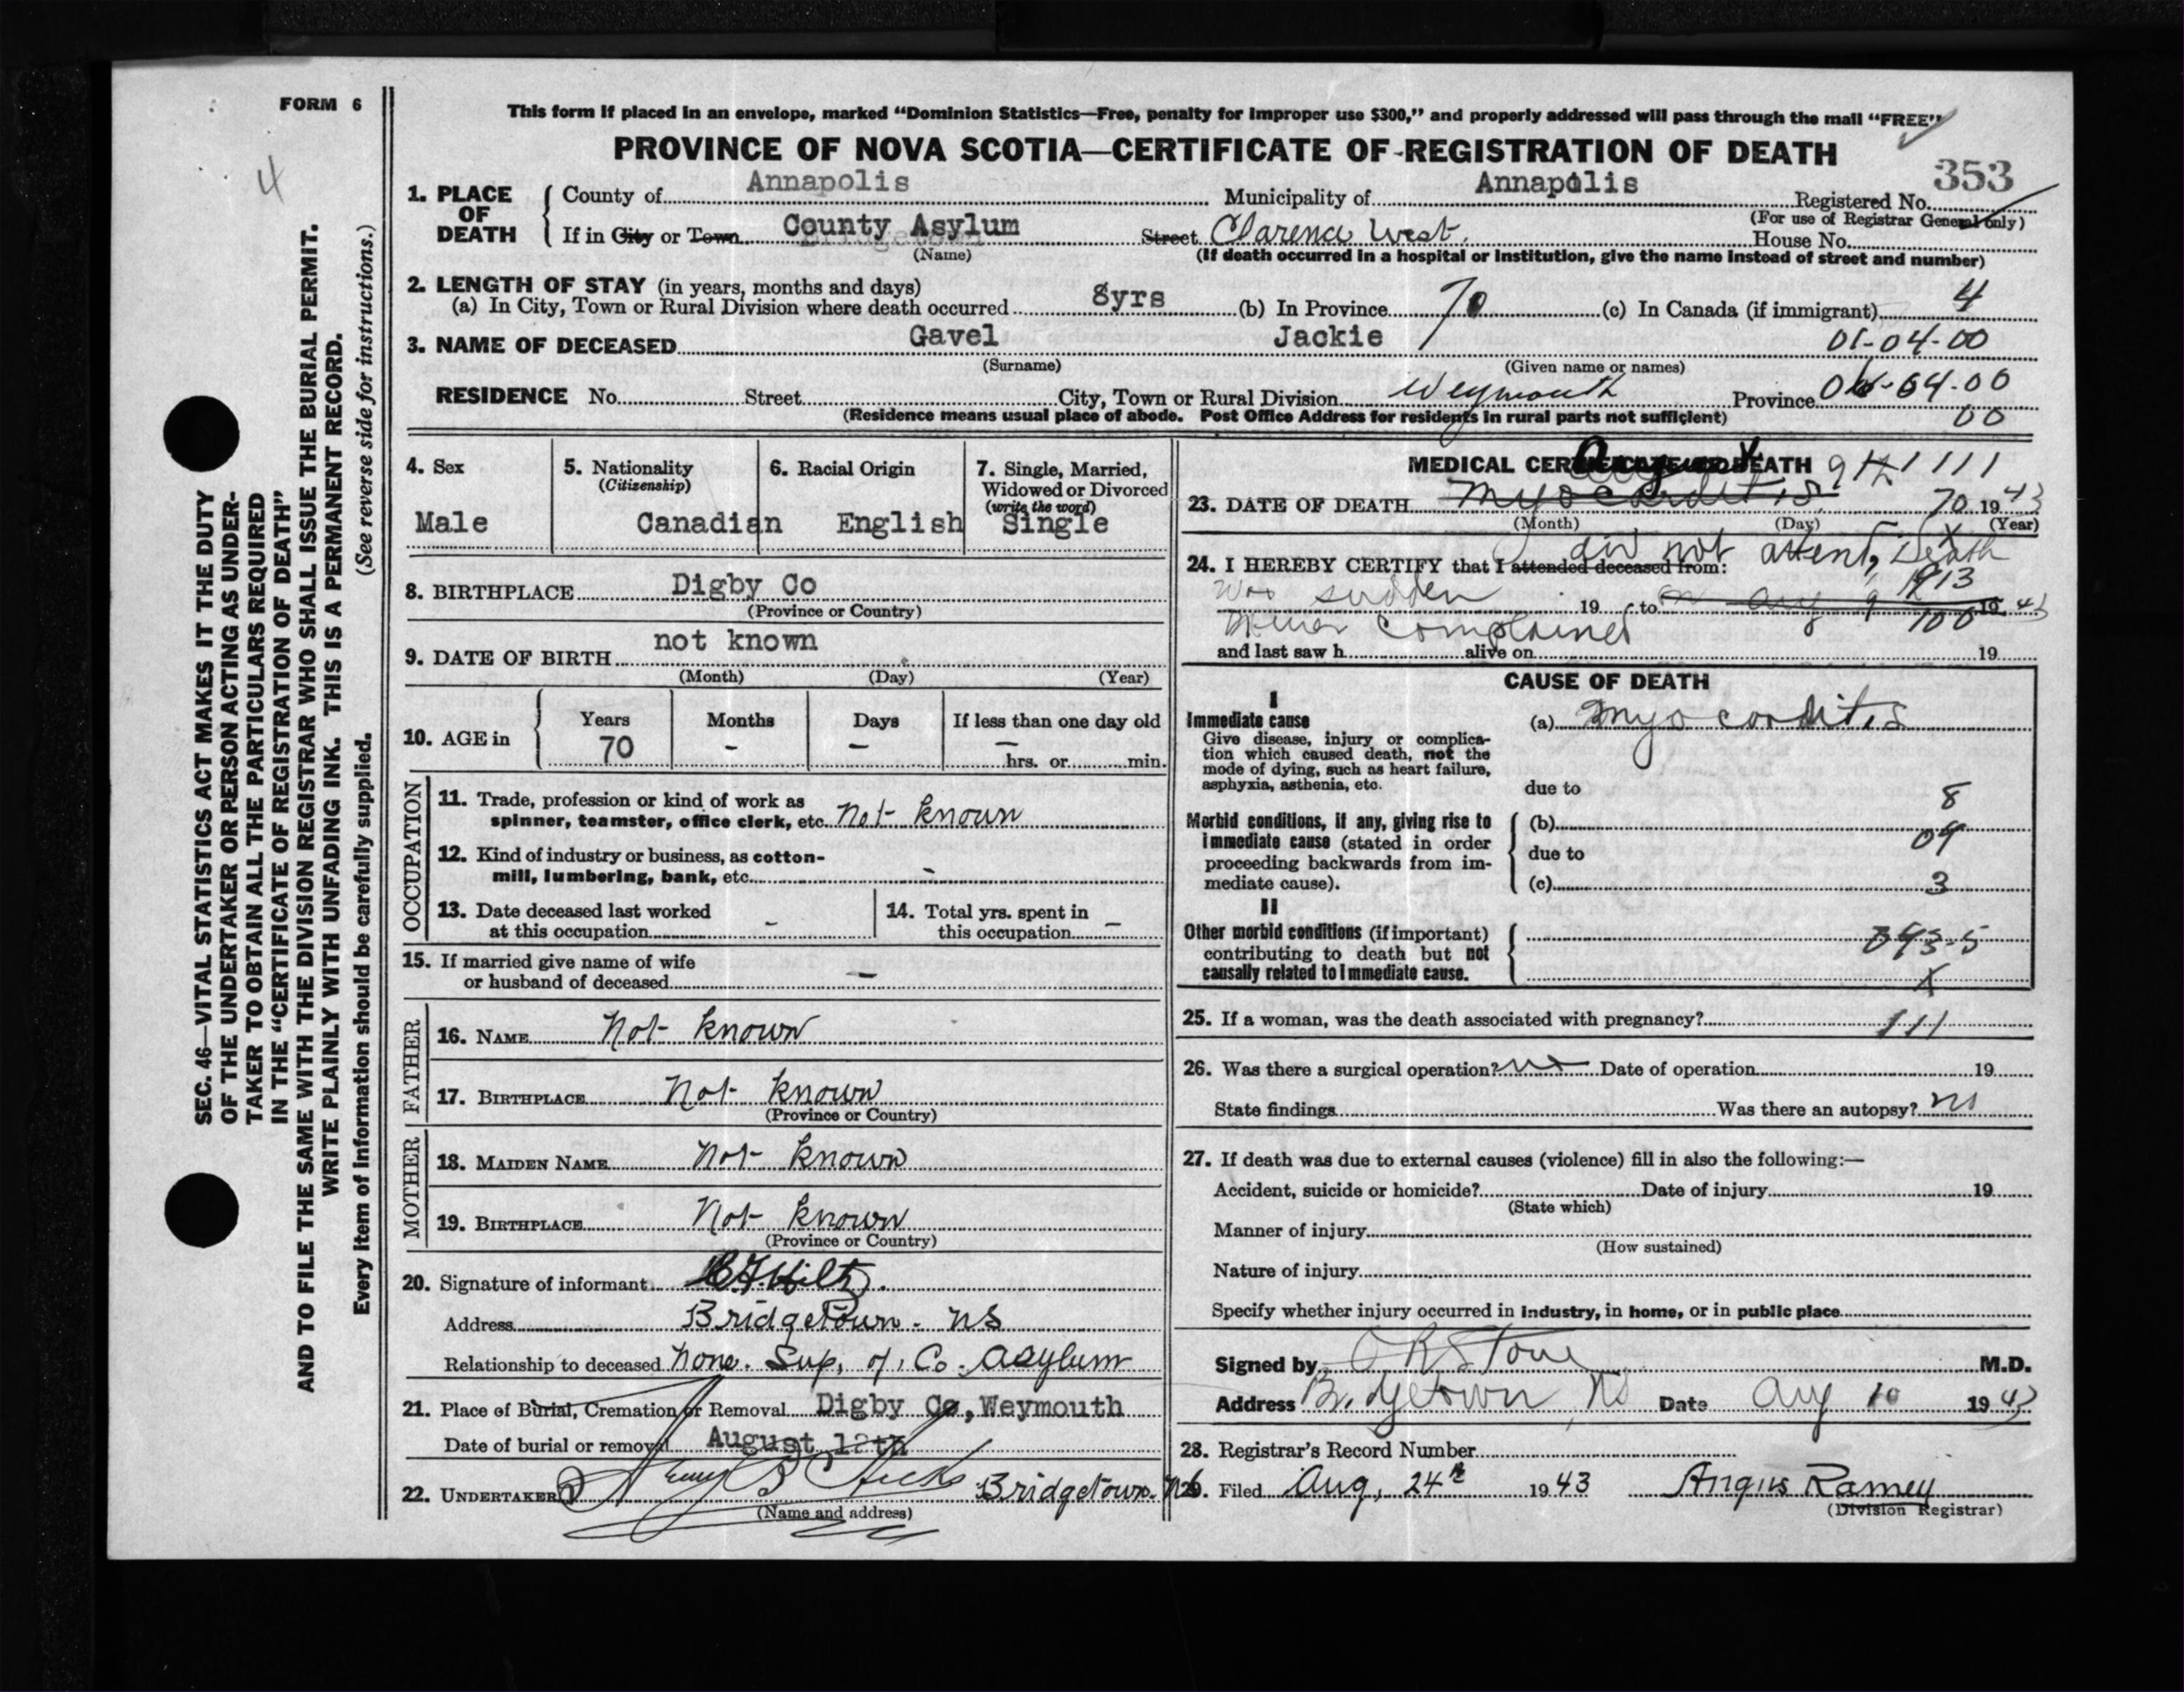 FORM 6
4
SEC. 46—VITAL STATISTICS ACT MAKES IT THE DUTY
OF THE UNDERTAKER OR PERSON ACTING AS UNDER-
TAKER TO OBTAIN ALL THE PARTICULARS REQUIRED
IN THE "CERTIFICATE OF REGISTRATION OF DEATH"
AND TO FILE THE SAME WITH THE DIVISION REGISTRAR WHO SHALL ISSUE THE BURIAL PERMIT.
WRITE PLAINLY WITH UNFADING INK. THIS IS A PERMANENT RECORD.
Every item of information should be carefully supplied. (See reverse side for instructions.)
This form if placed in an envelope, marked "Dominion Statistics—Free, penalty for improper use $300," and properly addressed will pass through the mail "FREE"
PROVINCE OF NOVA SCOTIA—CERTIFICATE OF REGISTRATION OF DEATH
353
1. PLACE OF DEATH County of Annapolis Municipality of Annapolis Registered No.
(For use of Registrar General only)
If in City or Town County Asylum Street Clarence West. House No.
(Name) (If death occurred in a hospital or institution, give the name instead of street and number)
2. LENGTH OF STAY (in years, months and days)
(a) In City, Town or Rural Division where death occurred 8yrs (b) In Province 70 (c) In Canada (if immigrant) 4
3. NAME OF DECEASED Gavel Jackie 01-04-00
(Surname) (Given name or names)
RESIDENCE No. Street City, Town or Rural Division Weymouth Province 04-00
(Residence means usual place of abode. Post Office Address for residents in rural parts not sufficient) 00
4. Sex 5. Nationality (Citizenship) 6. Racial Origin 7. Single, Married, Widowed or Divorced (write the word)
Male Canadian English Single
8. BIRTHPLACE Digby Co
(Province or Country)
9. DATE OF BIRTH not known
(Month) (Day) (Year)
10. AGE in Years Months Days If less than one day old
70 - - - hrs. or min.
OCCUPATION
11. Trade, profession or kind of work as
spinner, teamster, office clerk, etc. Not known
12. Kind of industry or business, as cotton-
mill, lumbering, bank, etc. -
13. Date deceased last worked
at this occupation -
14. Total yrs. spent in
this occupation -
15. If married give name of wife
or husband of deceased -
FATHER
16. NAME Not known
17. BIRTHPLACE Not known
(Province or Country)
MOTHER
18. MAIDEN NAME Not known
19. BIRTHPLACE Not known
(Province or Country)
20. Signature of informant Hiltz.
Address Bridgetown. NS
Relationship to deceased None. Sup. of. Co. Asylum
21. Place of Burial, Cremation or Removal Digby Co, Weymouth
Date of burial or removal August 12th
22. UNDERTAKER Hicks Bridgetown. NS
(Name and address)
MEDICAL CERTIFICATE OF DEATH August 9th 1111
23. DATE OF DEATH Myocarditis 70 1943
(Month) (Day) (Year)
24. I HEREBY CERTIFY that I attended deceased from: did not attend, Death
was sudden 19 to on Aug 9 1943
913
Never complained 100
and last saw h alive on 19
CAUSE OF DEATH
I
Immediate cause
Give disease, injury or complica-
tion which caused death, not the
mode of dying, such as heart failure,
asphyxia, asthenia, etc.
(a) Myocarditis
due to 8
Morbid conditions, if any, giving rise to
immediate cause (stated in order
proceeding backwards from im-
mediate cause).
(b) 04
due to
(c) 3
II
Other morbid conditions (if important)
contributing to death but not
causally related to immediate cause.
X
25. If a woman, was the death associated with pregnancy? 111
26. Was there a surgical operation? no Date of operation 19
State findings Was there an autopsy? no
27. If death was due to external causes (violence) fill in also the following:—
Accident, suicide or homicide? Date of injury 19
(State which)
Manner of injury
(How sustained)
Nature of injury
Specify whether injury occurred in industry, in home, or in public place
Signed by Stone M.D.
Address Bridgetown, NS Date Aug 10 1943
28. Registrar's Record Number
29. Filed Aug. 24th 1943 Angus Ramey
(Division Registrar)